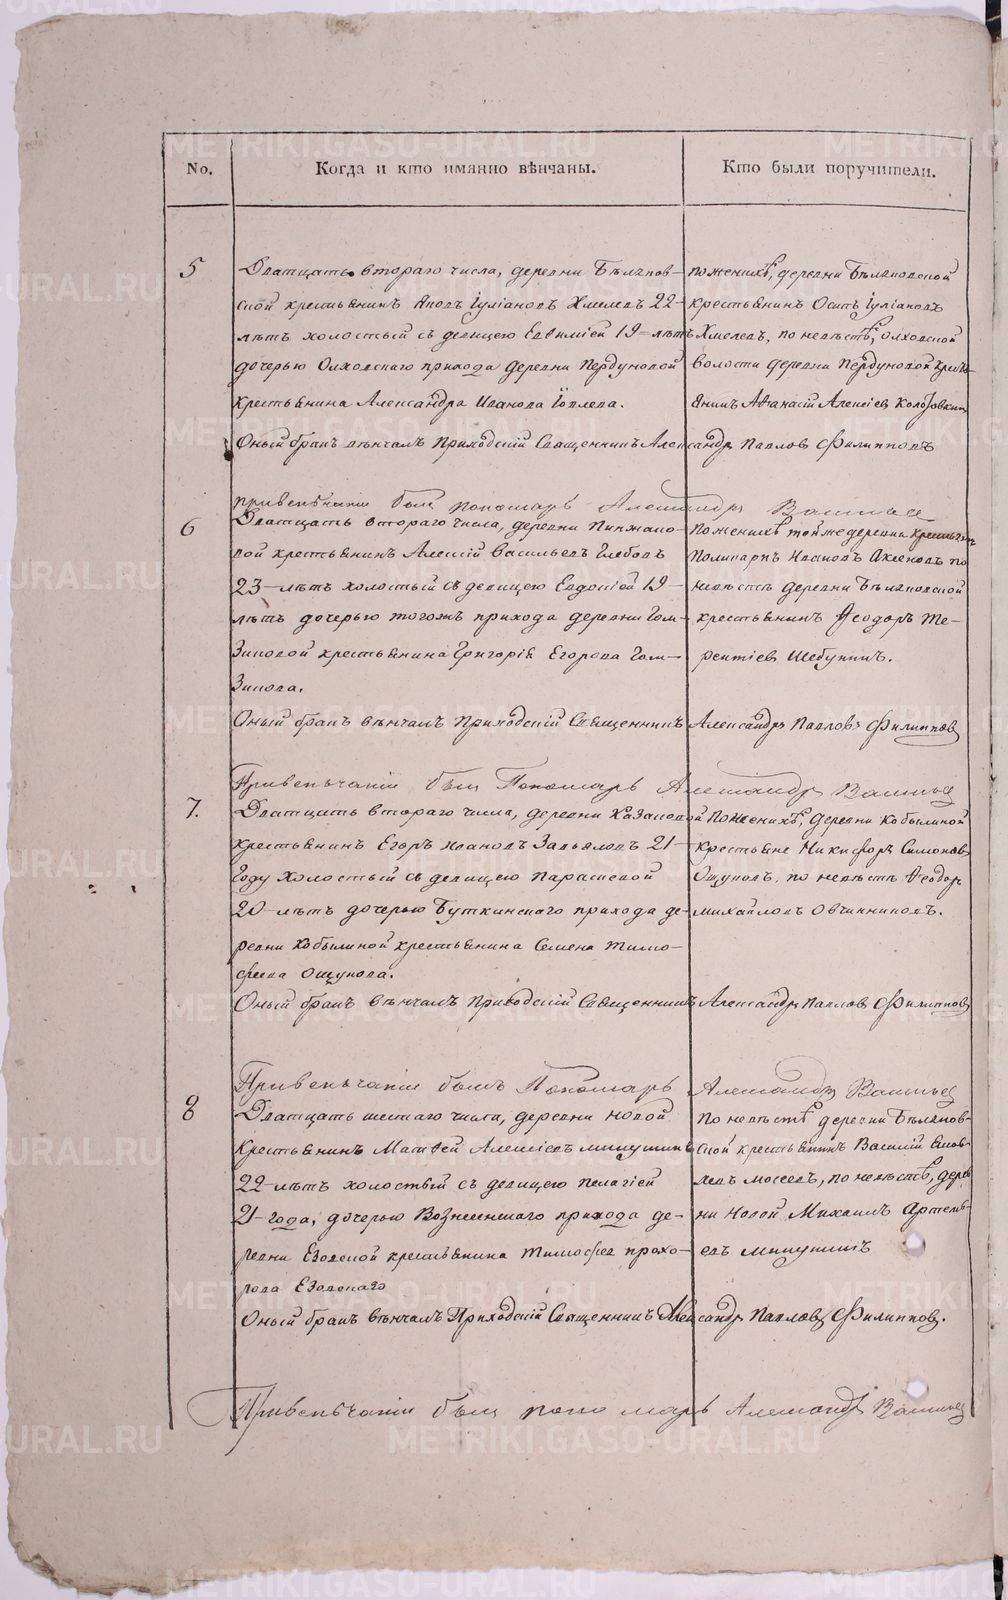 No. Когда и кто имянно вѣнчаны. Кто были поручители.
5
Дватцать втораго числа, деревни Бѣляков-
ской крестьянинъ Яковъ Іуліановъ Хмелевъ 22-
лѣтъ холостый съ девицею Евѳиміей 19-лѣтъ
дочерью Олховскаго прихода деревни Пердуновой
крестьянина Александра Иванова
По женихѣ, деревни Бѣляковской
крестьянинъ Осипъ Іуліановъ
Хмелев, по невѣстѣ, олховской
волости деревни Пердуновой крестья-
янинъ Аѳанасій Алексіев
Оный бракъ вѣнчалъ Приходскій Священникъ Александр Павлов Филипповъ
при венчаніи был пономарь Александр
6
Дватцать втораго числа, деревни
вой крестьянинъ Алексій Васильевъ Глебовъ
23-лѣтъ холостый съ девицею Евдокіей 19-
лѣтъ дочерью тогожъ прихода деревни Гом-
зиковой крестьянина Григорія Егорова Гом-
зикова.
По женихѣ той же деревни крестьянин
Поликарп Иванов Аксенов по
невѣстѣ деревни Бѣляковской
крестьянинъ Ѳеодоръ Те-
рентіев Шебунинъ.
Оный бракъ вѣнчалъ Приходскій Священникъ Александр Павлов Филиппов
При венчаніи был Пономарь Александр
7.
Дватцать втораго числа, деревни Казаковой
крестьянинъ Егоръ Ивановъ Завьяловъ 21-
году холостый съ девицею Параскевой
20-лѣтъ дочерью Буткинскаго прихода де-
ревни Кобылиной крестьянина Семена Тимо-
феева Ощукова.
По женихѣ, деревни Кобылиной
крестьяне Никифоръ Симонов
Ощуковъ, по невѣстѣ Ѳеодор
Михайловъ Овчинниковъ.
Оный бракъ вѣнчалъ Приходскій Священникъ Александр Павлов Филиппов
При венчаніи былъ Пономарь Александр
8
Дватцать шестаго числа, деревни Новой
Крестьянинъ Матѳей Алексіевъ Микушинъ
22-лѣтъ холостый съ девицею Пелагіей
21-года, дочерью Вознесенскаго прихода де-
ревни Езовской крестьянина Тимофея Прохо-
рова Езовскаго
По невѣстѣ деревни Бѣляков-
ской крестьянинъ Василій Яков-
левъ Мосеевъ, по невѣстѣ, дерев
ни Новой Михаилъ Артемь-
евъ Микушинъ
Оный бракъ вѣнчалъ Приходскій Священникъ Александр Павлов Филиппов.
При венчаніи был пономарь Александр
METRIKI.GASO-URAL.RU